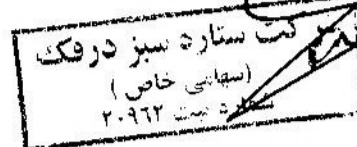 شرکت ستاره سبز درفک
(سهامی خاص)
شماره ثبت ۲۰۹۶۲